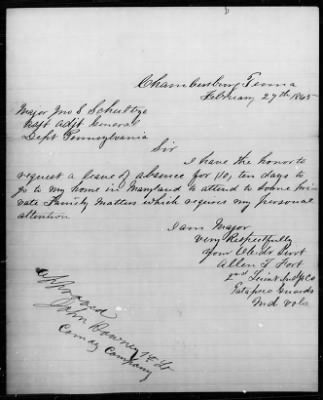 Chambersburg Penna
February 27th 1865
Major Jno S. Schultze
Asst Adjt General
Dept Pennsylvania
Sir
I have the honor to
request a leave of absence for 10, ten days to
go to my home in Maryland to attend to some pri
vate Family Matters which requires my personal
attention
I am Major
Very Respectfully
Your Obedr Servt
Allen T Fort
2nd Lieut
Patapsco Guards
Md Vols
Approved
John Downey 1st Lt
Comdg Company